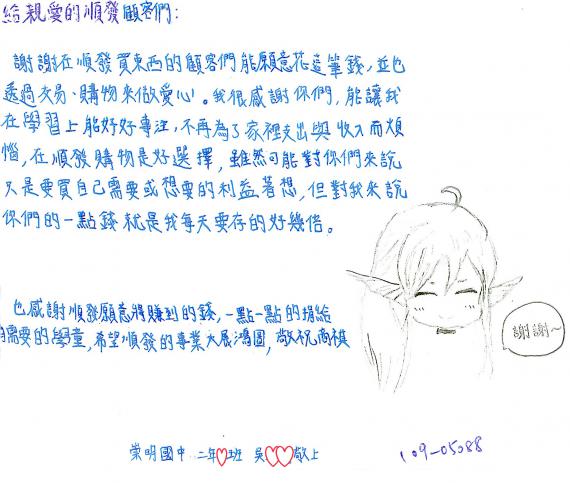 給親愛的順發顧客們:
謝謝在順發買東西的顧客們能願意花這筆錢,並也
透過交易、購物來做愛心。我很感謝你們,能讓我
在學習上能好好專注,不再為了家裡支出與收入而煩
惱,在順發購物是好選擇,雖然可能對你們來說
只是要買自己需要或想要的利益著想,但對我來說
你們的一點錢就是我每天要存的好幾倍。
也感謝順發願意將賺到的錢,一點一點的捐給
需要的學童,希望順發的事業大展鴻圖,敬祝商祺
謝謝~
崇明國中 二年班 吳 敬上
109-05088